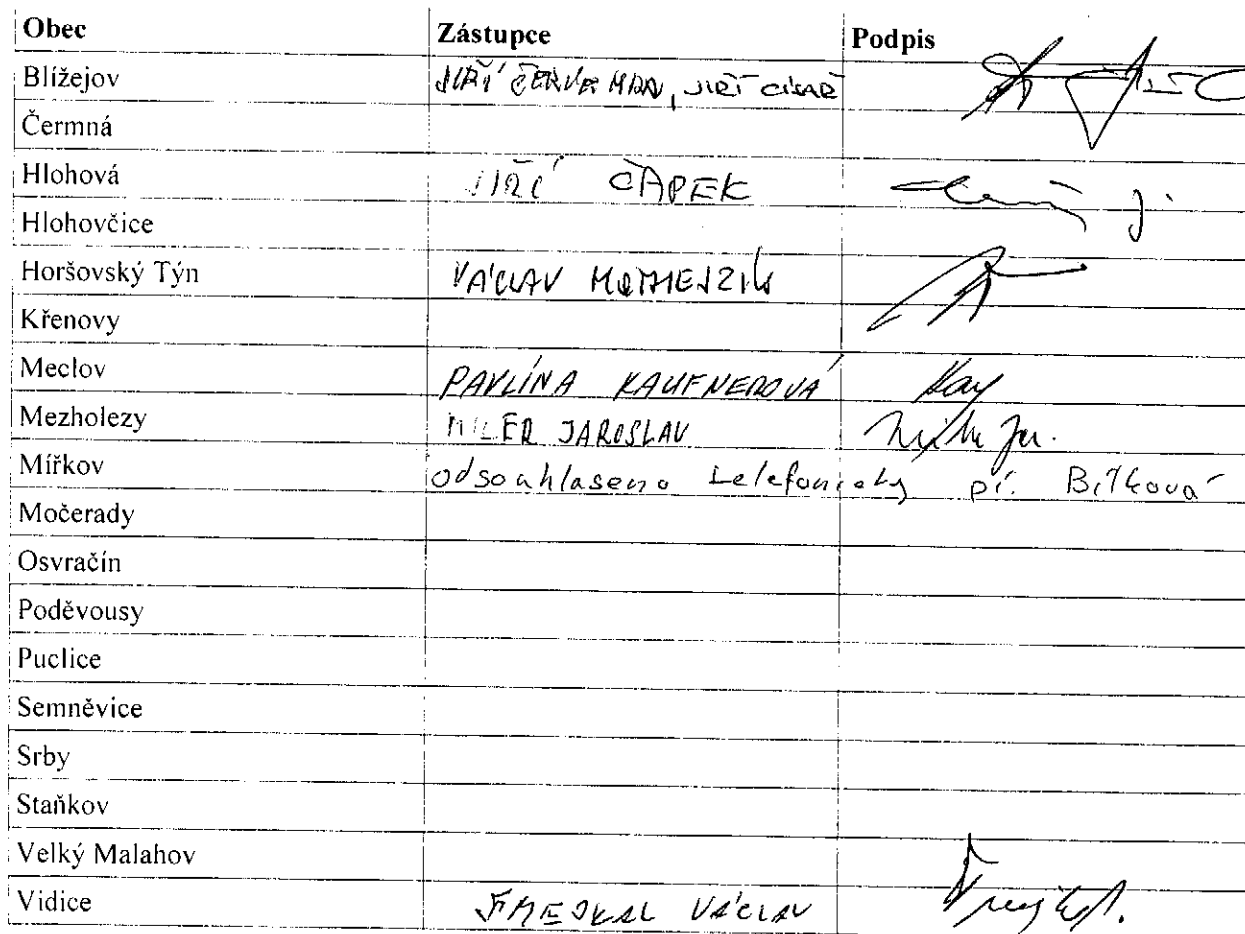 Obec Zástupce Podpis
Blížejov JIŘÍ ČERVENÝ, JIŘÍ CÍSAŘ
Čermná
Hlohová JIŘÍ ČAPEK
Hlohovčice
Horšovský Týn VÁCLAV
Křenovy
Meclov PAVLÍNA KAUFNEROVÁ
Mezholezy JAROSLAV
Mířkov odsouhlaseno telefonicky pí. Bílková
Močerady
Osvračín
Poděvousy
Puclice
Semněvice
Srby
Staňkov
Velký Malahov
Vidice VÁCLAV